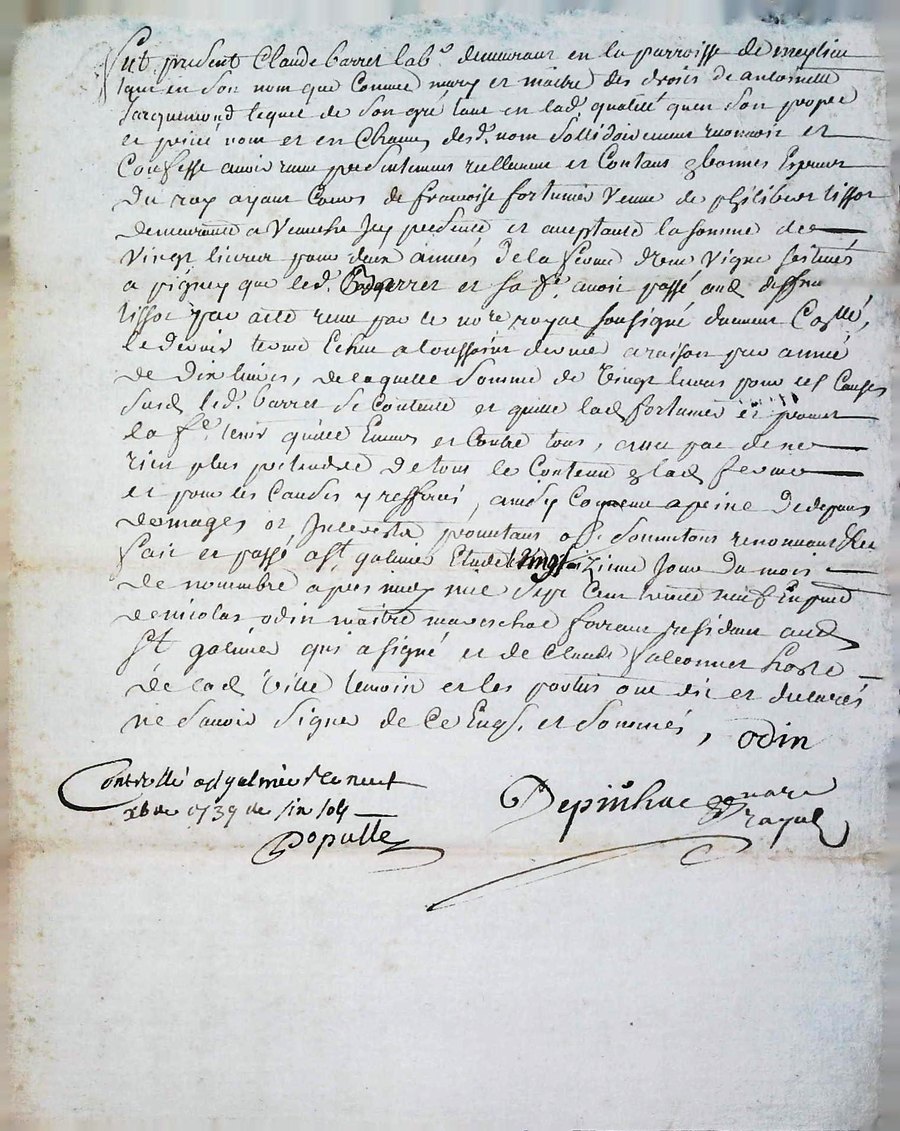 Fut présent Claude barret lab.r demeurant en la parroisse de meylieu
tant en son nom que Comme mary et maitre des droits de antoinette
Jacquemond lequel de son gré tant en lad. qualité quen son propre
et privé nom et en Chacun desd. nom sollidairement reconnoit et
Confesse avoir receu presentement reellement et Contant Especes
du roy ayant Cours de françoise fortunier veuve de philibert tissot
demeurante a Veauche Icy presente et aceptante la somme de
vingt livres pour deux années de la ferme d'une vigne scituées
a que led. barret et sa fe. avoit passé aud. deffunt
tissot par acte receu par le nore. royal soussigné
le dernier terme Echeu a toussaint derniere a raison par année
de dix livres, de laquelle somme de vingt livres pour les Causes
susd. led. barret se Contente et quitte lad. fortunier et promet
la fe. tenir quitte Envers et Contre tous, avec pac de ne
rien plus pretendre de tout le Contenu lad. ferme
et pour les Causes y resservés, ainsy Convenu a peine de depens
domages et Interests promettans obl. soumettans renonceant &c
fait et passé a St. galmier Etude jour du mois
de novembre apres midy mil sept Cent trente neuf En presence
de nicolas odin maitre mareschal ferrant residant aud.
St. galmier qui a signé et de Claude falconnet hoste
de lad. ville temoin et les parties ont dit et declarés
ne scavoir signer de ce Enqs. et sommés, odin
Controllé a St galmier le neuf
xbre 1739 six sols
Depinhac notaire
royal
populle